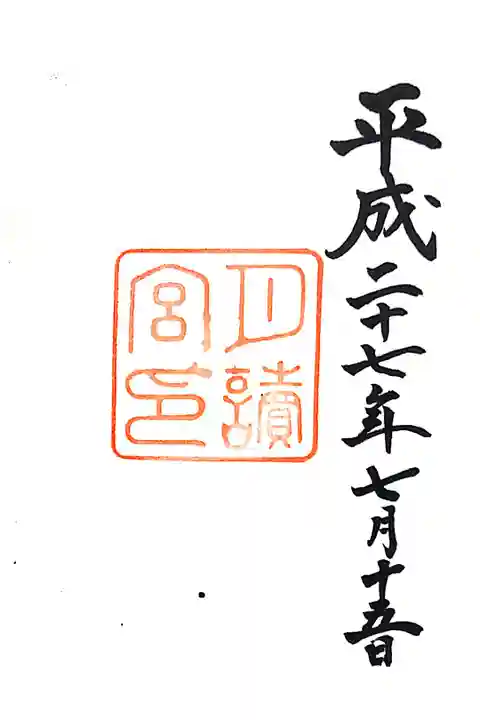 平成二十七年七月十五日
月讀
宮印